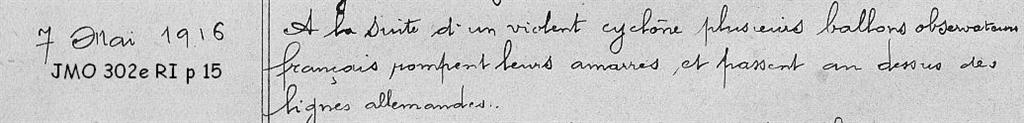 7 Mai 1916
JMO 302e RI p 15
A la suite d'un violent cyclône plusieurs ballons observateurs
français rompent leurs amarres, et passent au dessus des
lignes allemandes..